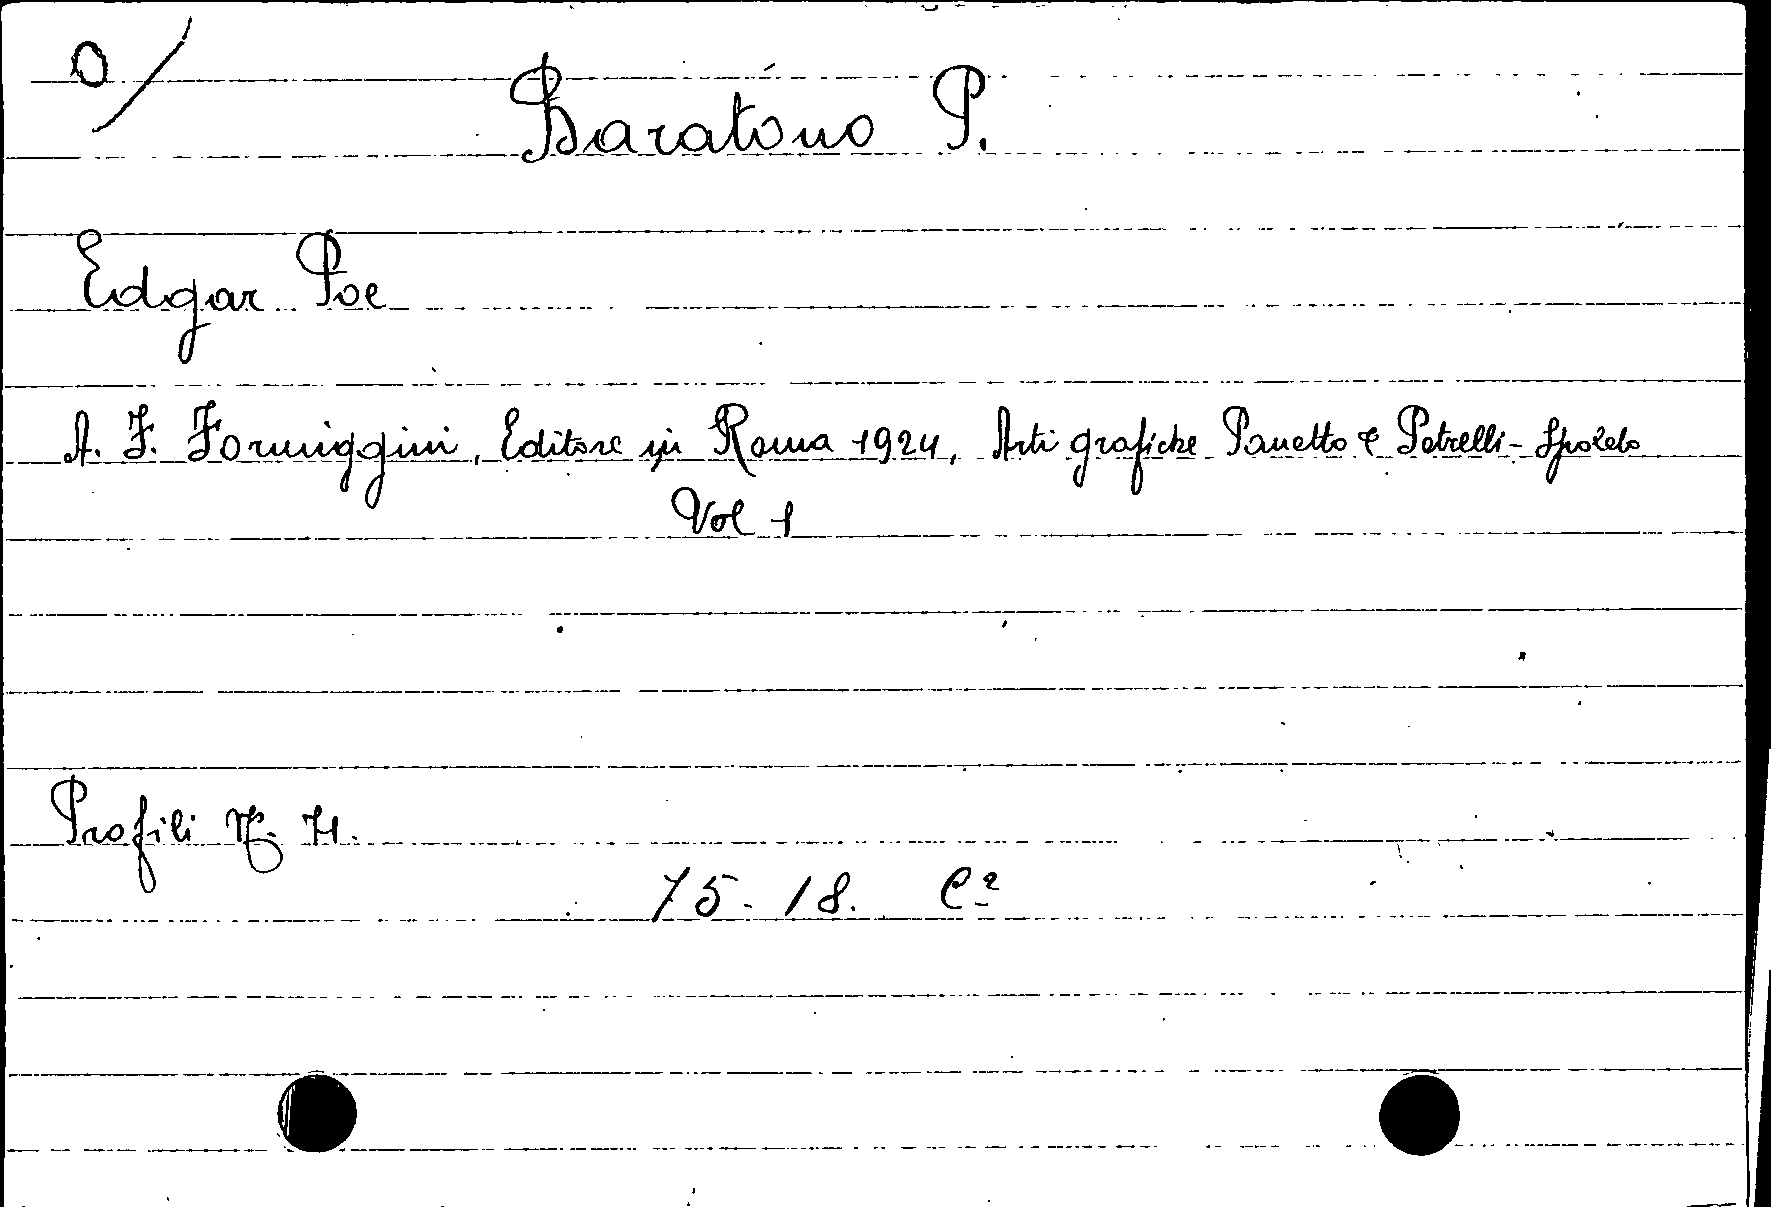 0/
Baratono P.
Edgar Poe
A. F. Formiggini, Editore in Roma 1924, Arti grafiche Panetto & Petrelli - Spoleto
Vol 1
Profili
75. 18. C²